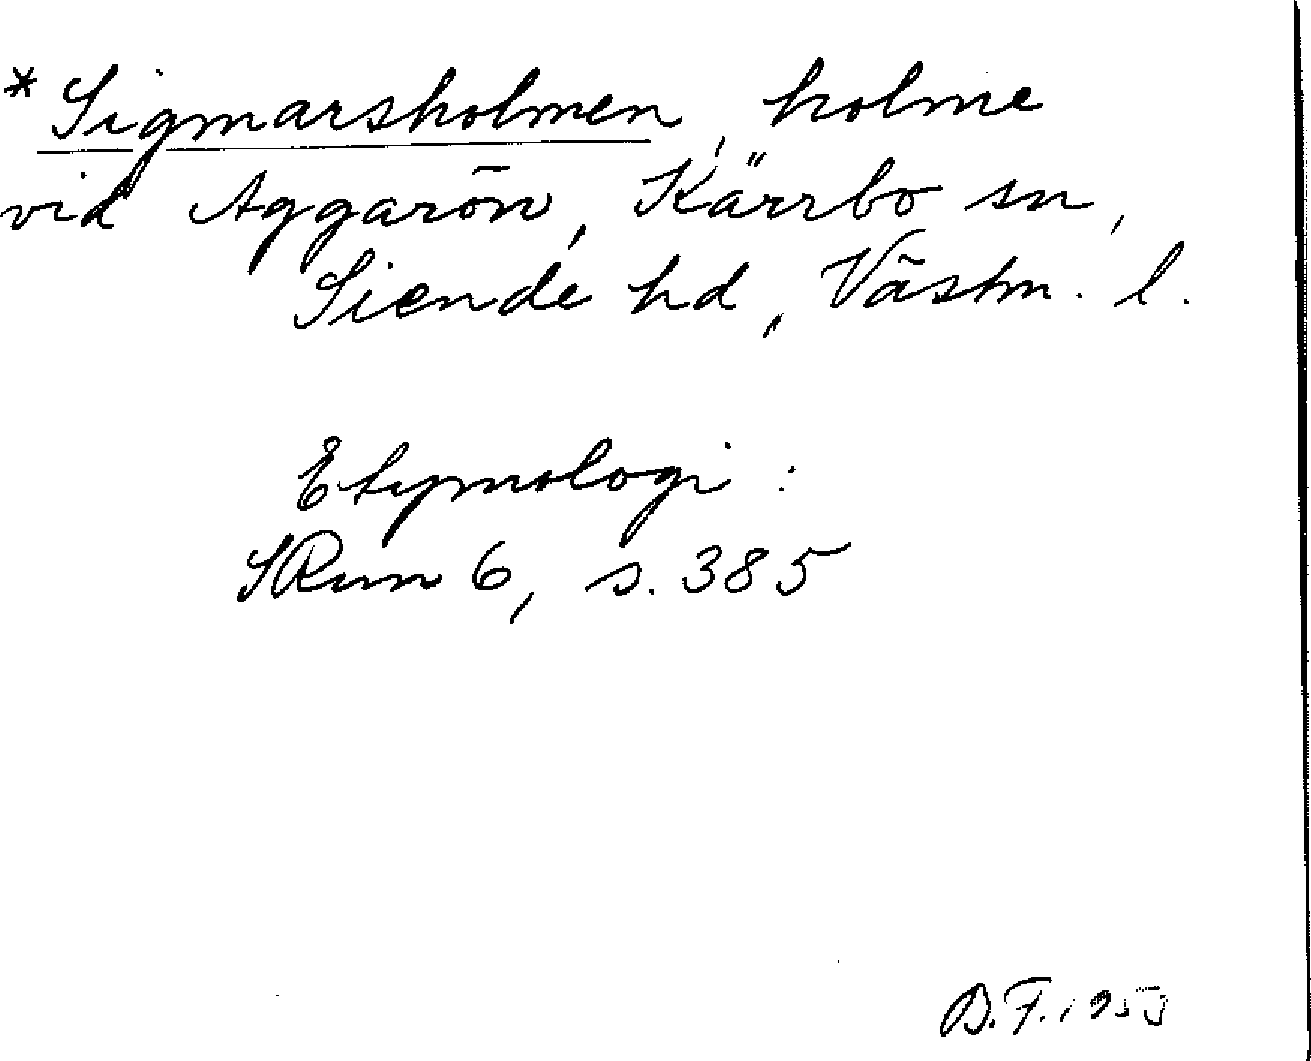 *Sigmarsholmen, holme
vid Aggarön, Kärrbo sn,
Siende hd, Västm. l.
Etymologi:
SRun 6, s. 385
B.F. 1953